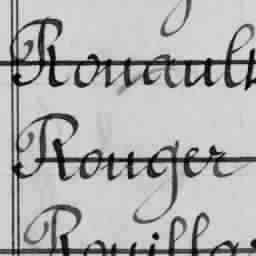 Rouault
Rouger
Rouillar